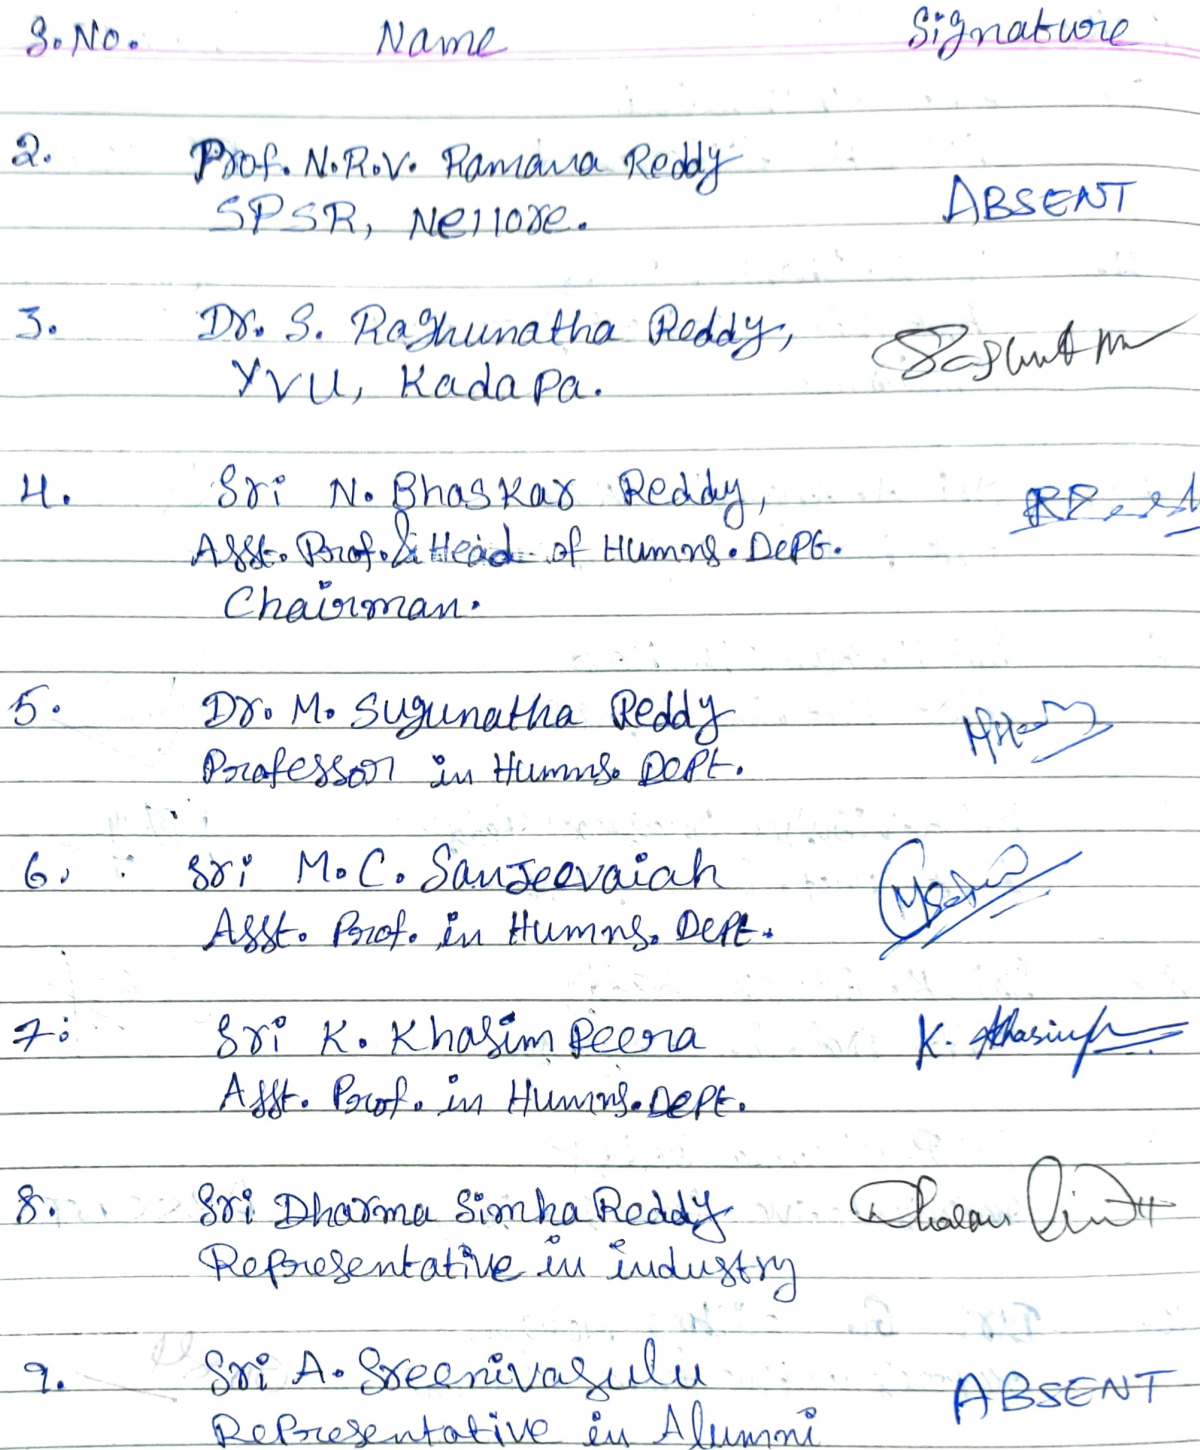 S.No. Name Signature
2. Prof. N.R.V. Ramana Reddy
SPSR, Nellore.
ABSENT
3. Dr. S. Raghunatha Reddy,
YVU, Kadapa.
4. Sri N. Bhaskar Reddy,
Asst. Prof. & Head of Humns. Dept.
Chairman.
5. Dr. M. Sugunatha Reddy
Professor in Humns. Dept.
6. Sri M.C. Sanjeevaiah
Asst. Prof. in Humns. Dept.
7. Sri K. Khasim Peera
Asst. Prof. in Humns. Dept.
8. Sri Dharma Simha Reddy
Representative in industry
9. Sri A. Sreenivasulu
ABSENT
Representative in Alumni